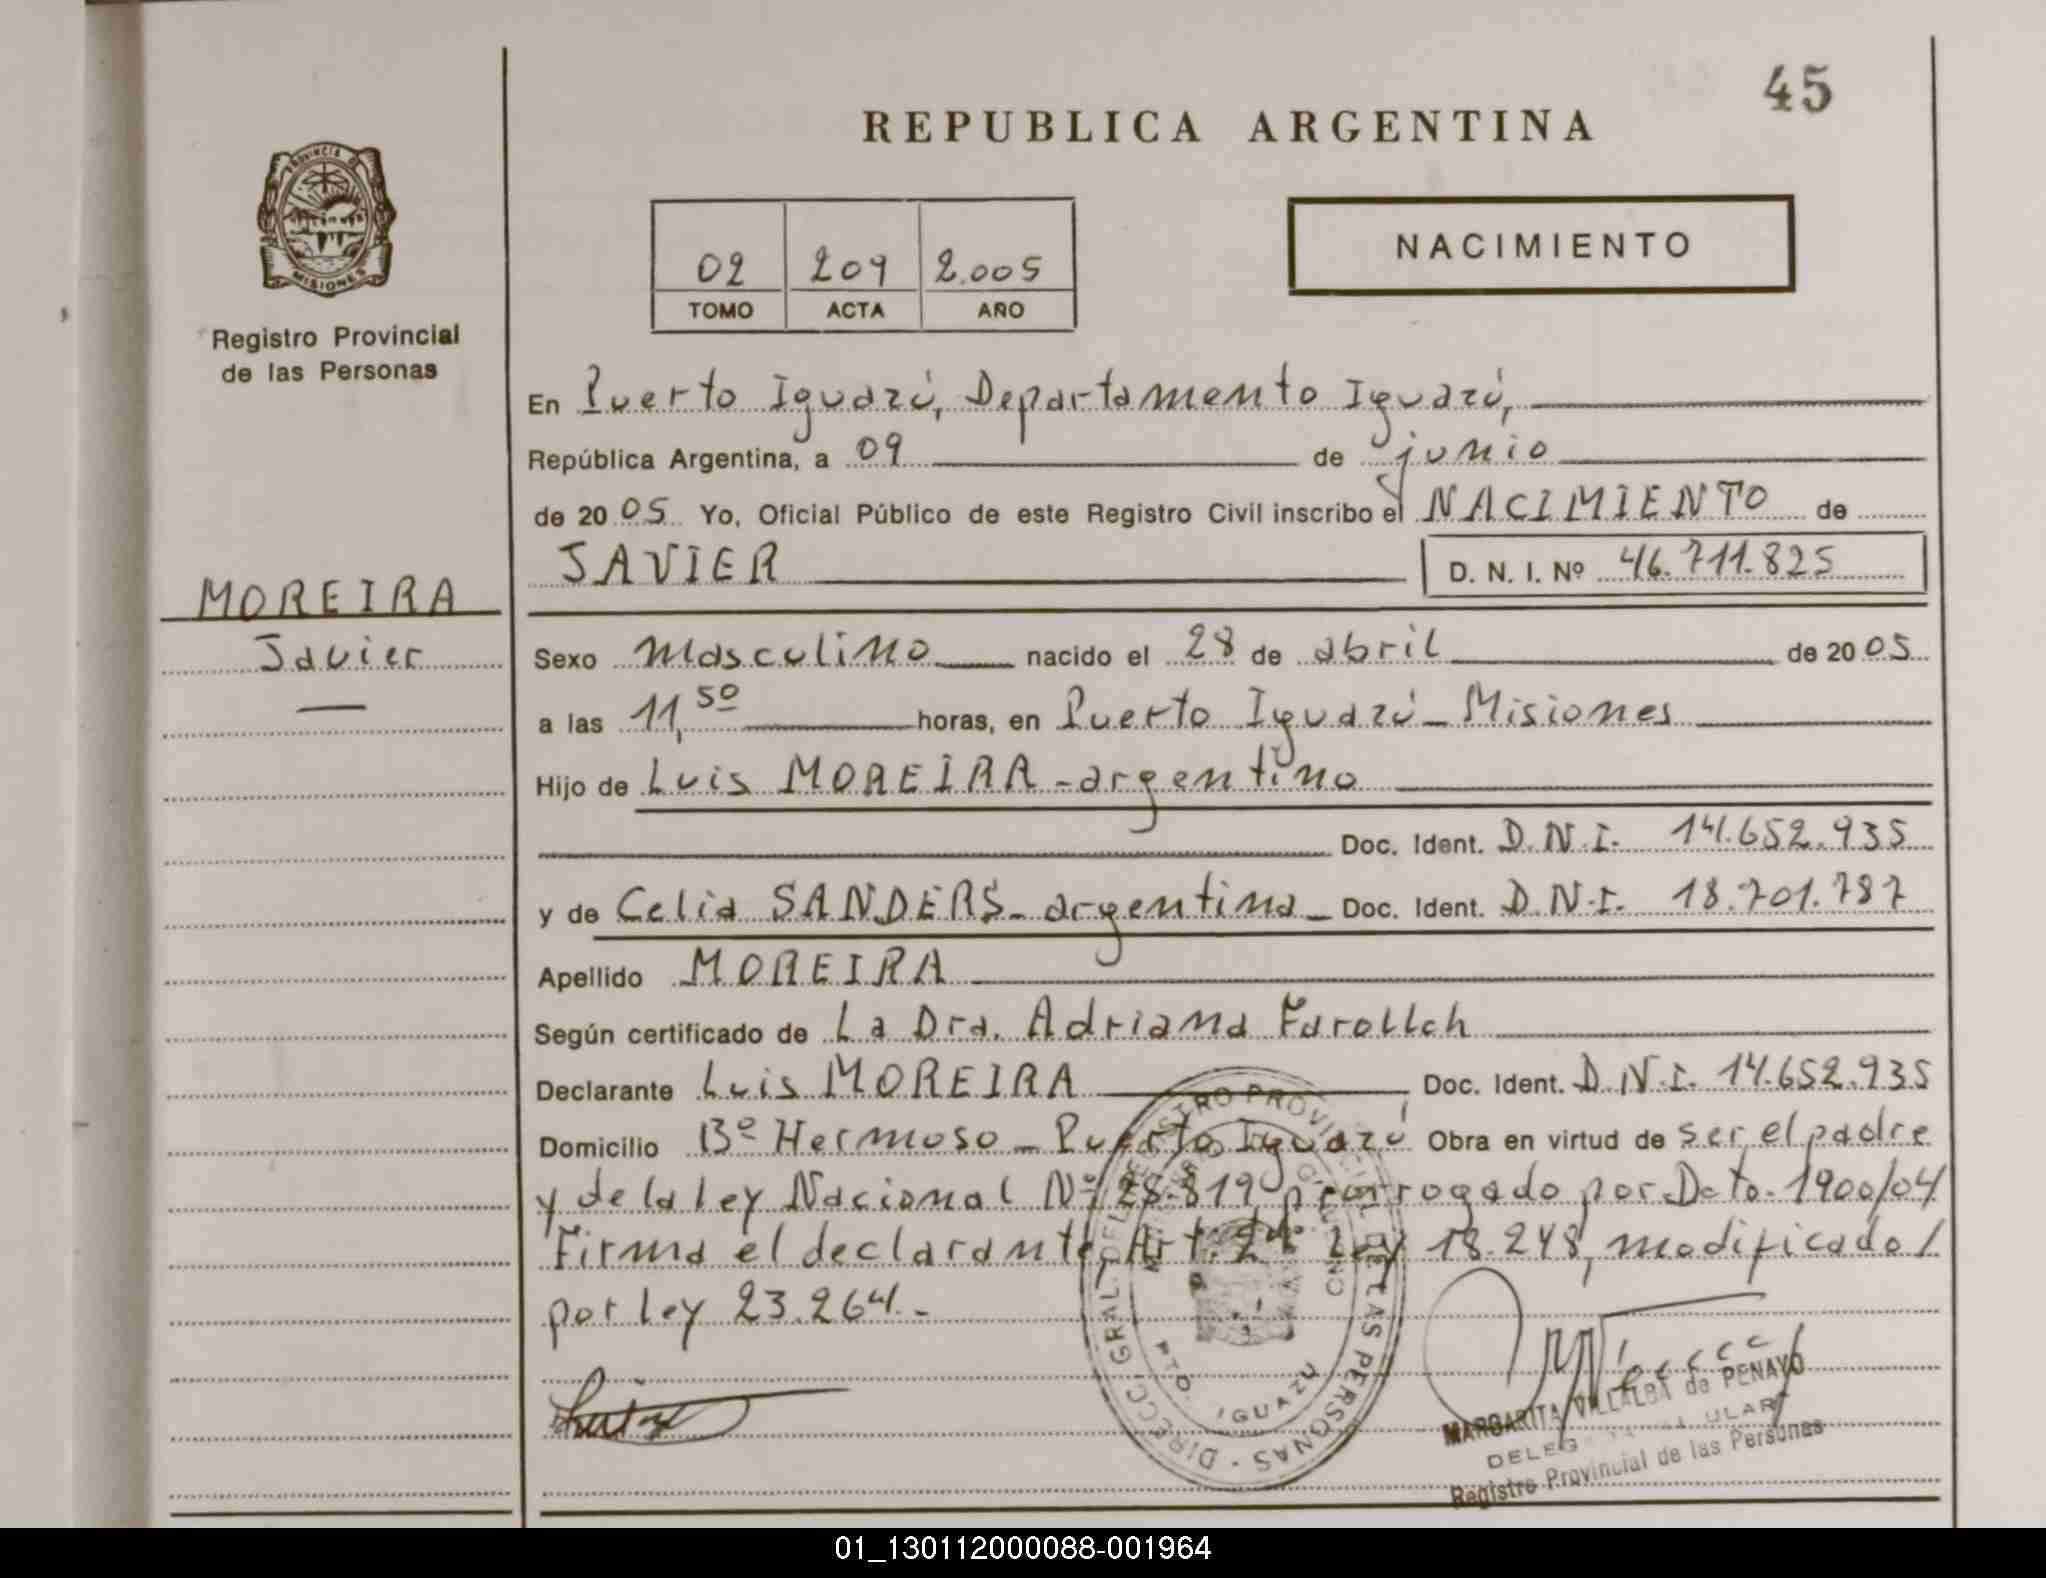 45
REPUBLICA ARGENTINA
PROVINCIA D
MISIONES
Registro Provincial
de las Personas
02 209 2.005
TOMO ACTA AÑO
NACIMIENTO
En Puerto Iguazú, Departamento Iguazú,
República Argentina, a 09 de junio
de 2005 Yo, Oficial Público de este Registro Civil inscribo el NACIMIENTO de
JAVIER D. N. I. Nº 46.711.825
MOREIRA
Javier
Sexo masculino nacido el 28 de abril de 2005
a las 11,50 horas, en Puerto Iguazú - Misiones
Hijo de Luis MOREIRA - argentino
Doc. Ident. D.N.I. 14.652.935
y de Celia SANDERS - argentina - Doc. Ident. D.N.I. 18.701.787
Apellido MOREIRA
Según certificado de La Dra. Adriana
Declarante Luis MOREIRA Doc. Ident. D.N.I. 14.652.935
Domicilio Bº Hermoso - Puerto Iguazú Obra en virtud de ser el padre
y de la ley Nacional Nº 25.819 prorrogado por Dcto. 1900/04
Firma el declarante, Art. 2do ley 18.248, modificado/
por ley 23.264.-
DIRECC. GRAL. DEL REGISTRO PROVINCIAL DE LAS PERSONAS
PTO. IGUAZU
MARGARITA VILLALBA de PENAYO
Registro Provincial de las Personas
01_130112000088-001964